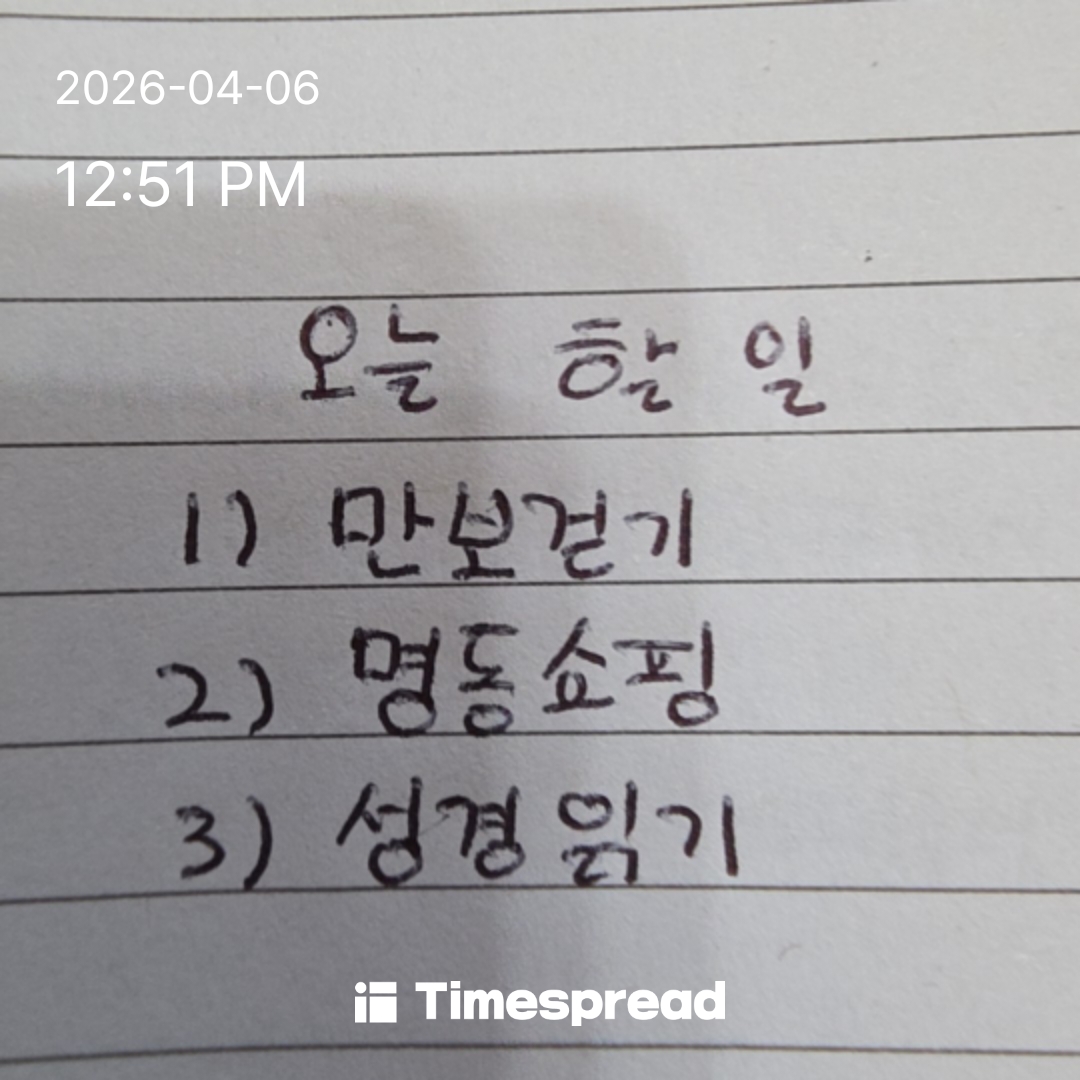 2026-04-06
12:51 PM
오늘 할 일
1) 만보걷기
2) 명동쇼핑
3) 성경읽기
Timespread